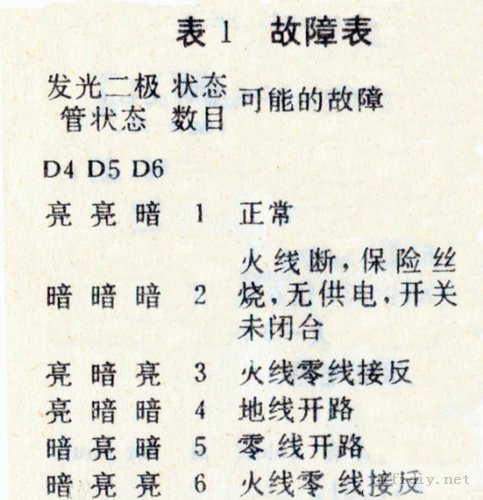 表1 故障表
发光二极 状态 可能的故障
管状态 数目
D4 D5 D6
亮 亮 暗 1 正常
火线断,保险丝
暗 暗 暗 2 烧,无供电,开关
未闭合
亮 暗 亮 3 火线零线接反
亮 暗 暗 4 地线开路
暗 亮 暗 5 零线开路
暗 亮 亮 6 火线零线接反